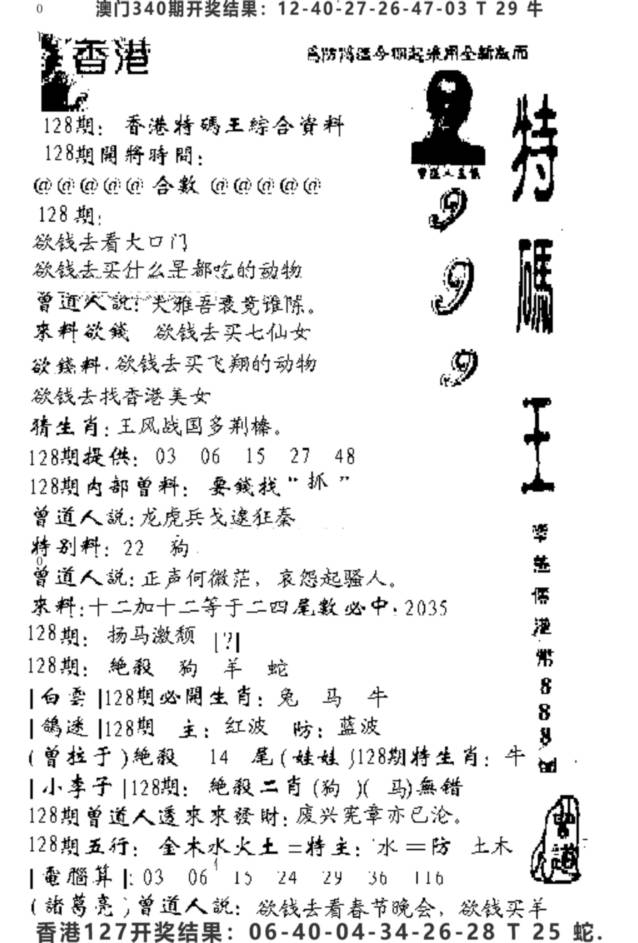 0
澳门340期开奖结果：12-40-27-26-47-03 T 29 牛
香港
特碼王
999
128期：香港特碼王綜合資料
128期開將時間：
@@@@@合數@@@@@
128期：
欲钱去看大口门
欲钱去买什么早都吃的动物
曾道人説：大雅吾衰竟谁陈。
來料欲錢 欲钱去买七仙女
欲錢料．欲钱去买飞翔的动物
欲钱去找香港美女
猜生肖：王风战国多荆榛。
128期提供：03 06 15 27 48
128期内部曾料：要錢找“抓”
曾道人説：龙虎兵戈逮狂秦
特别料：22 狗
0
曾道人説：正声何微茫，哀怨起骚人。
來料：十二加十二等于二四尾數必中．2035
128期：扬马激颓 |?|
128期：絶殺 狗 羊 蛇
|白雲|128期必開生肖：兔 马 牛
|鴿迷|128期 主：红波 防：蓝波
(曾拉于)絶殺 14 尾(娃娃)128期特生肖：牛
|小李子|128期：絶殺二肖(狗)(马)無错
128期曾道人透來來發財：废兴宪章亦已沦。
128期五行：金木水火土=特主：水=防 土木
|電腦算|：03 06 15 24 29 36 116
(諸葛亮)曾道人説：欲钱去看春节晚会，欲钱买羊
888
曾道
香港127开奖结果：06-40-04-34-26-28 T 25 蛇.